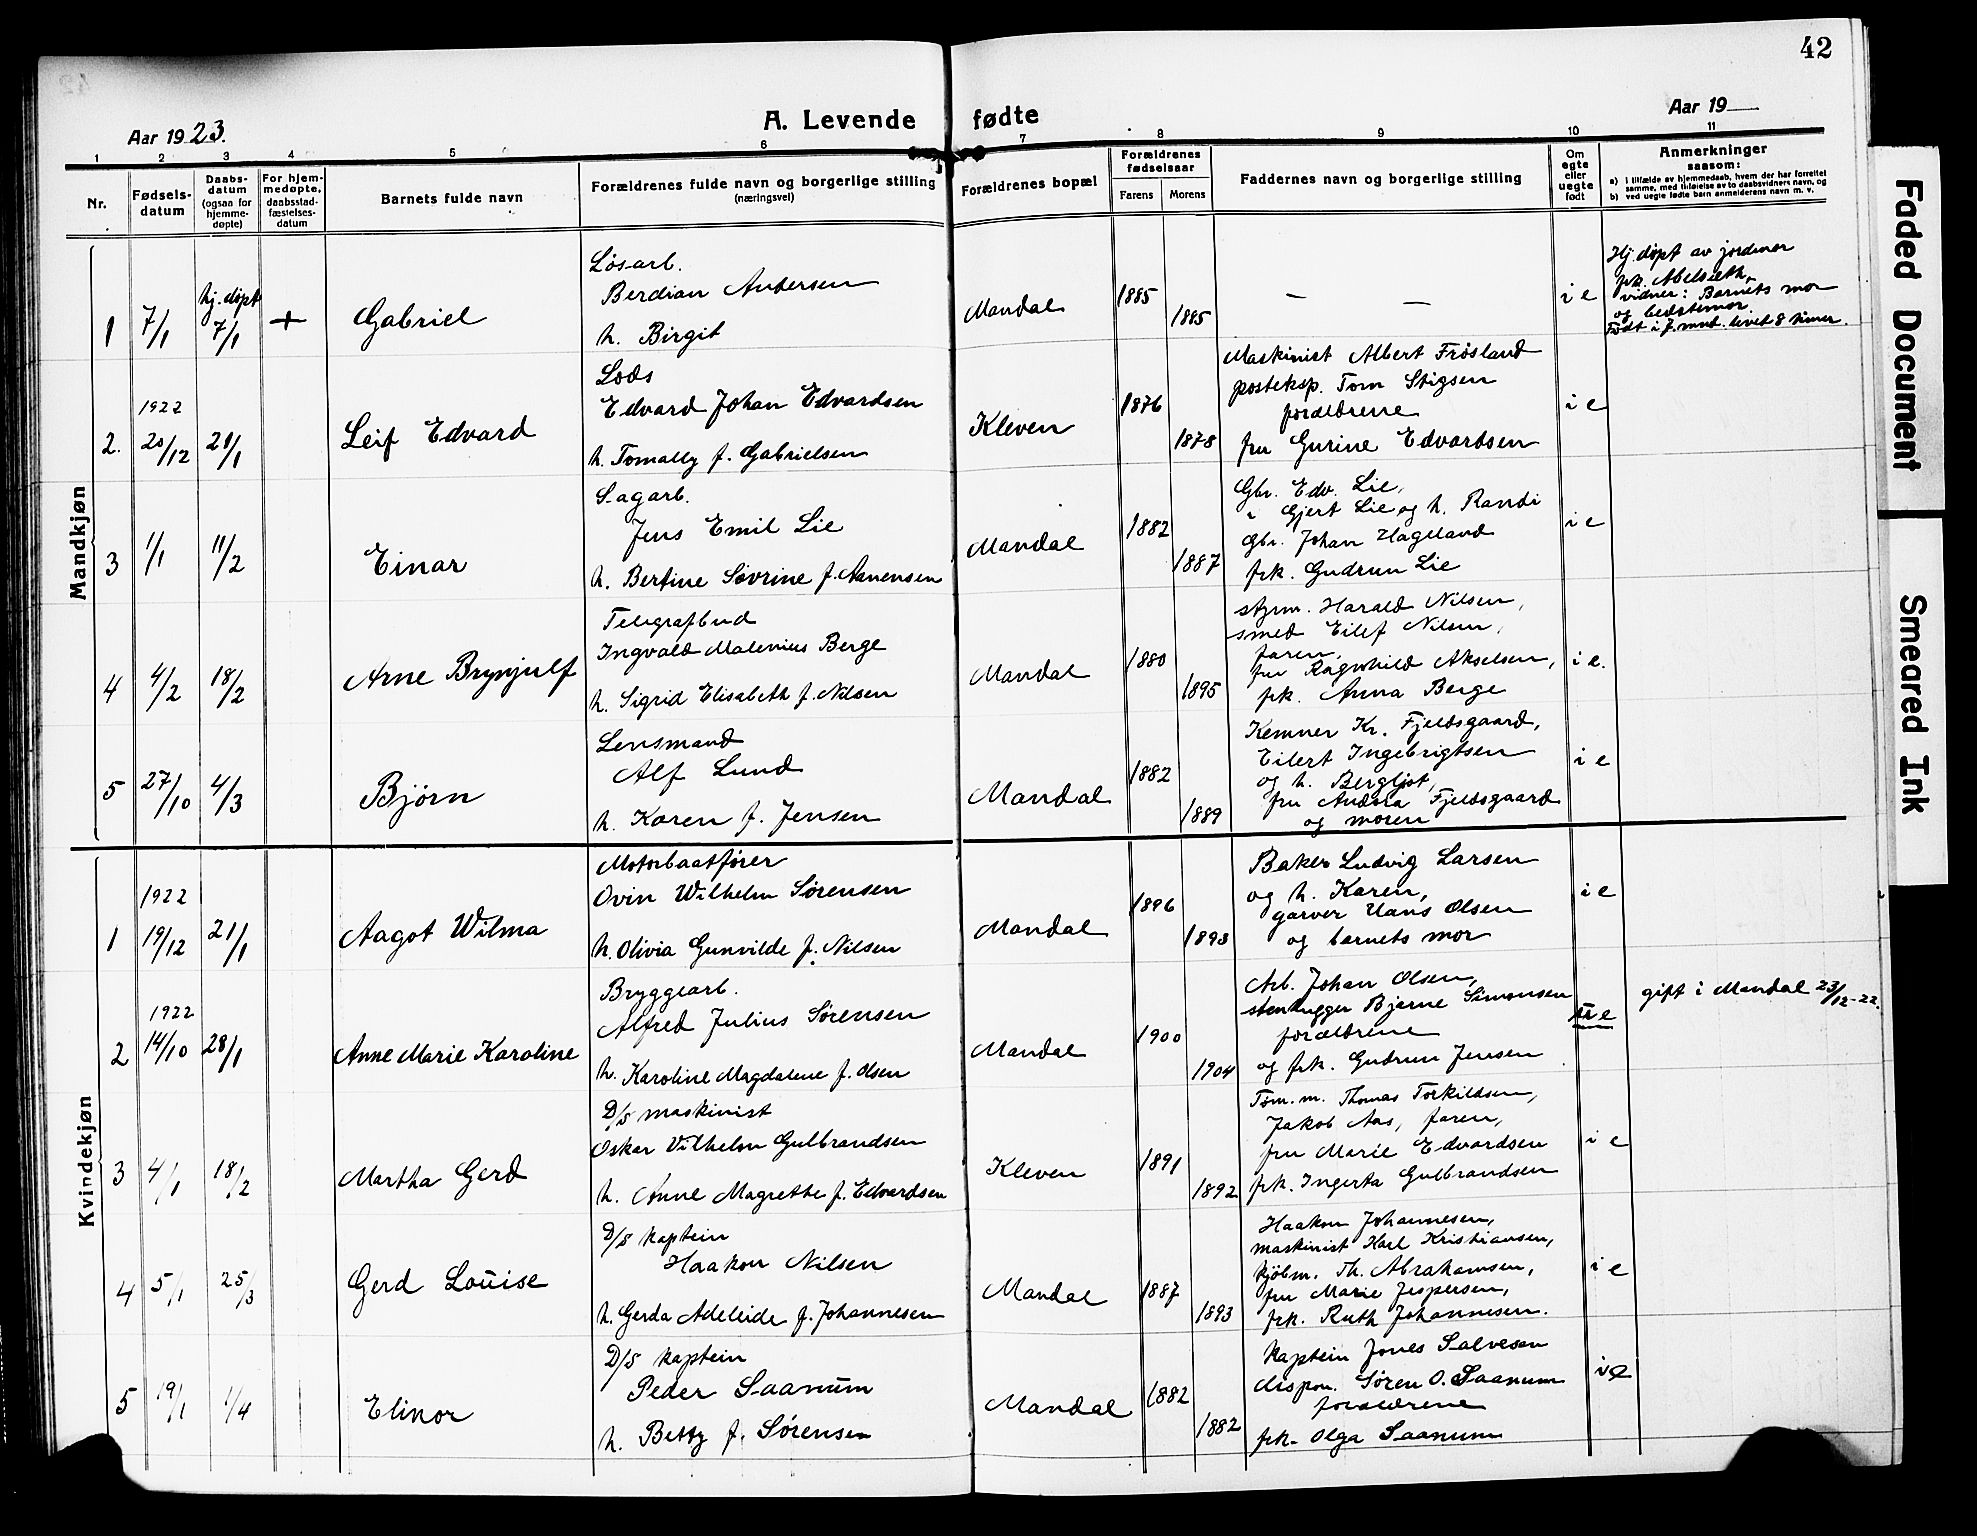 42
Aar 1923.
A. Levende fødte
Aar 19
1 2 3 4 5 6 7 8 9 10 11
Nr.
Fødsels-
datum
Daabs-
datum
(ogsaa for
hjemme-
døpte)
For hjem-
medøpte,
daabsstad-
fæstelses-
datum
Barnets fulde navn
Forældrenes fulde navn og borgerlige stilling
(næringsvei)
Forældrenes bopæl
Forældrenes
fødselsaar
Farens Morens
Faddernes navn og borgerlige stilling
Om
egte
eller
uegte
født
Anmerkninger
saasom:
a) i tilfælde av hjemmedaab, hvem der har forrettet
samme, med tilføielse av to daabsvidners navn, og
b) ved uegte fødte barn anmelderens navn m. v.
Mandkjøn
1
7/1
hj. døpt
7/1
+
Gabriel
Løsarb.
Berdian Andersen
h. Birgit
Mandal
1885
1885
— —
i e
Hj. døpt av jordmor
frk. Abelsæth,
vidner: Barnets mor
og bedstemor
Født i 7. mnd. levet 8 timer.
2.
1922
20/12
21/1
Leif Edvard
Lods
Edvard Johan Edvardsen
h. Tomally f. Gabrielsen
Kleven
1876
1878
Maskinist Albert Frøsland
posteksp. Tom Stigsen
forældrene
fru Gurine Edvardsen
i e
3
1/1
11/2
Einar
Sagarb.
Jens Emil Lie
h. Bertine Sovrine f. Aanensen
Mandal
1882
1887
Gbr. Edv. Lie,
" Gjert Lie og h. Randi
Gbr. Johan Hageland
frk. Gudrun Lie
i e
4
4/2
18/2
Arne Brynjulf
Telegrafbud
Ingvald Malenius Berge
h. Sigrid Elisabeth f. Nilsen
Mandal
1880
1895
styrm. Harald Nilsen,
smed Eilef Nilsen,
faren,
fru Ragnhild Akselsen,
frk. Anna Berge
i e.
5
27/10
4/3
Bjørn
Lensmand
Alf Lund
h. Karen f. Jensen
Mandal
1882
1889
Kemner Kr. Fjeldsgaard,
Eilert Ingebrigtsen
og h. Bergljot,
fru Andrea Fjeldsgaard
og moren
i e
Kvindekjøn
1
1922
19/12
21/1
Aagot Wilma
Motorbaatfører
Ovin Wilhelm Sørensen
h. Olivia Gunvilde f. Nilsen
Mandal
1896
1893
Baker Ludvig Larsen
og h. Karen,
garver Hans Olsen
og barnets mor
i e
2
1922
14/10
28/1
Anne Marie Karoline
Bryggearb.
Alfred Julius Sørensen
h. Karoline Magdalene f. Olsen
Mandal
1900
1904
Arb. Johan Olsen,
stenhugger Bjarne Simonsen
forældrene
og frk. Gudrun Jensen
e
gift i Mandal 23/12-22.
3
4/1
18/2
Martha Gerd
D/S maskinist
Oskar Vilhelm Gulbrandsen
h. Anne Magrethe f. Edvardsen
Kleven
1891
1892
Tøm. m. Thomas Torkildsen,
Jakob Aas, faren,
fru Marie Edvardsen
frk. Ingerta Gulbrandsen
i e
4
5/1
25/3
Gerd Louise
D/S kaptein
Haakon Nilsen
h. Gerda Adeleide f. Johannesen
Mandal
1887
1893
Haakon Johannesen,
maskinist Karl Kristiansen,
kjøbm. Th. Abrahamsen,
fru Marie Jespersen,
frk. Ruth Johannesen.
i e
5
19/1
1/4
Elinor
D/S kaptein
Peder Saanum
h. Betty f. Sørensen
Mandal
1882
1882
Kaptein Jones Salvesen
dispon. Søren O. Saanum
forældrene
frk. Olga Saanum
i e
Faded Document
Smeared Ink